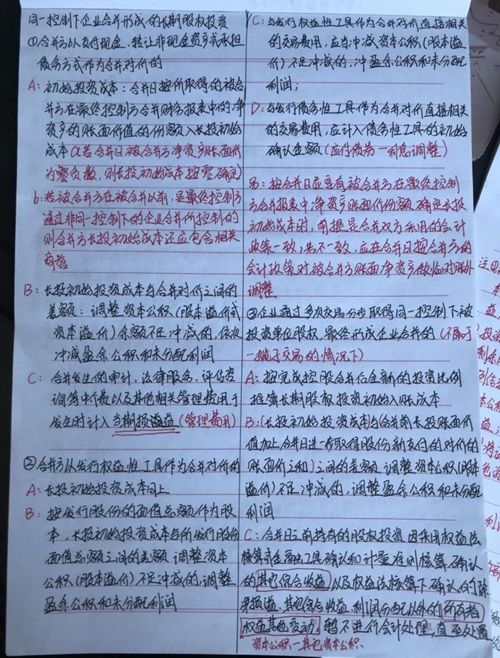 同一控制下企业合并形成的长期股权投资
①合并方以支付现金、转让非现金资产或承担
债务方式作为合并对价的
A：初始投资成本：合并日按取得的被合
并方在最终控制方合并财务报表中的净
资产的账面价值的份额入长投初始
成本（若合并日被合并方净资产账面价
为零负数，则长投初始成本按零确定）
b：若被合并方在被合并以前，是最终控制方
通过非同一控制下的企业合并所控制的
则合并方长投初始成本还应包含相关
商誉
B：长投初始投资成本与合并对价之间的
差额：调整资本公积（股本溢价或
资本溢价）余额不足冲减的，依次
冲减盈余公积和未分配利润
C：合并发生的审计、法律服务、评估咨
询等中介费以及其他相关管理费用于
发生时计入当期损益（管理费用）
②合并方以发行权益性工具作为合并对价的
A：长投初始投资成本同上
B：按发行股份的面值总额作为股
本，长投初始投资成本与所发行股份
面值总额之间的差额，调整资本
公积（股本溢价）不足冲减的，调整
盈余公积和未分配利润
C：与发行权益性工具作为合并对价直接相关
的交易费用，应当冲减资本公积（股本溢
价）不足冲减的，冲盈余公积和未分配
利润；
D：与发行债务性工具作为合并对价直接相关
的交易费用，应计入债务性工具的初始
确认金额（应付债券—利息调整）
合并报表中净资产账面价值份额确定长投
初始成本时，前提是合并双方采用的会计
政策一致，若不一致，应在合并日按合并方的
会计政策对被合并方账面净资产
调整
③企业通过多次交易分步取得同一控制下被
投资单位股权，最终形成企业合并的（不属于
一揽子交易的情况下）
A：按完成控股合并后全新的投资比例
计算长期股权投资初始入账成本
B：（长投初始投资成本）与（合并前长投账面价
值加上合并日进一步取得股份新支付的对价的
账面价之和）之间的差额，调整资本公积（股本
溢价）不足冲减的，调整盈余公积和未分配
利润
C：合并日之前持有的股权投资，因采用权益法
核算或金融工具确认和计量准则核算，确认
的其他综合收益以及权益法核算下确认的除
净损益、其他综合收益、利润分配以外的所有者
权益其他变动，暂不进行会计处理，直至处置
资本公积—其他资本公积